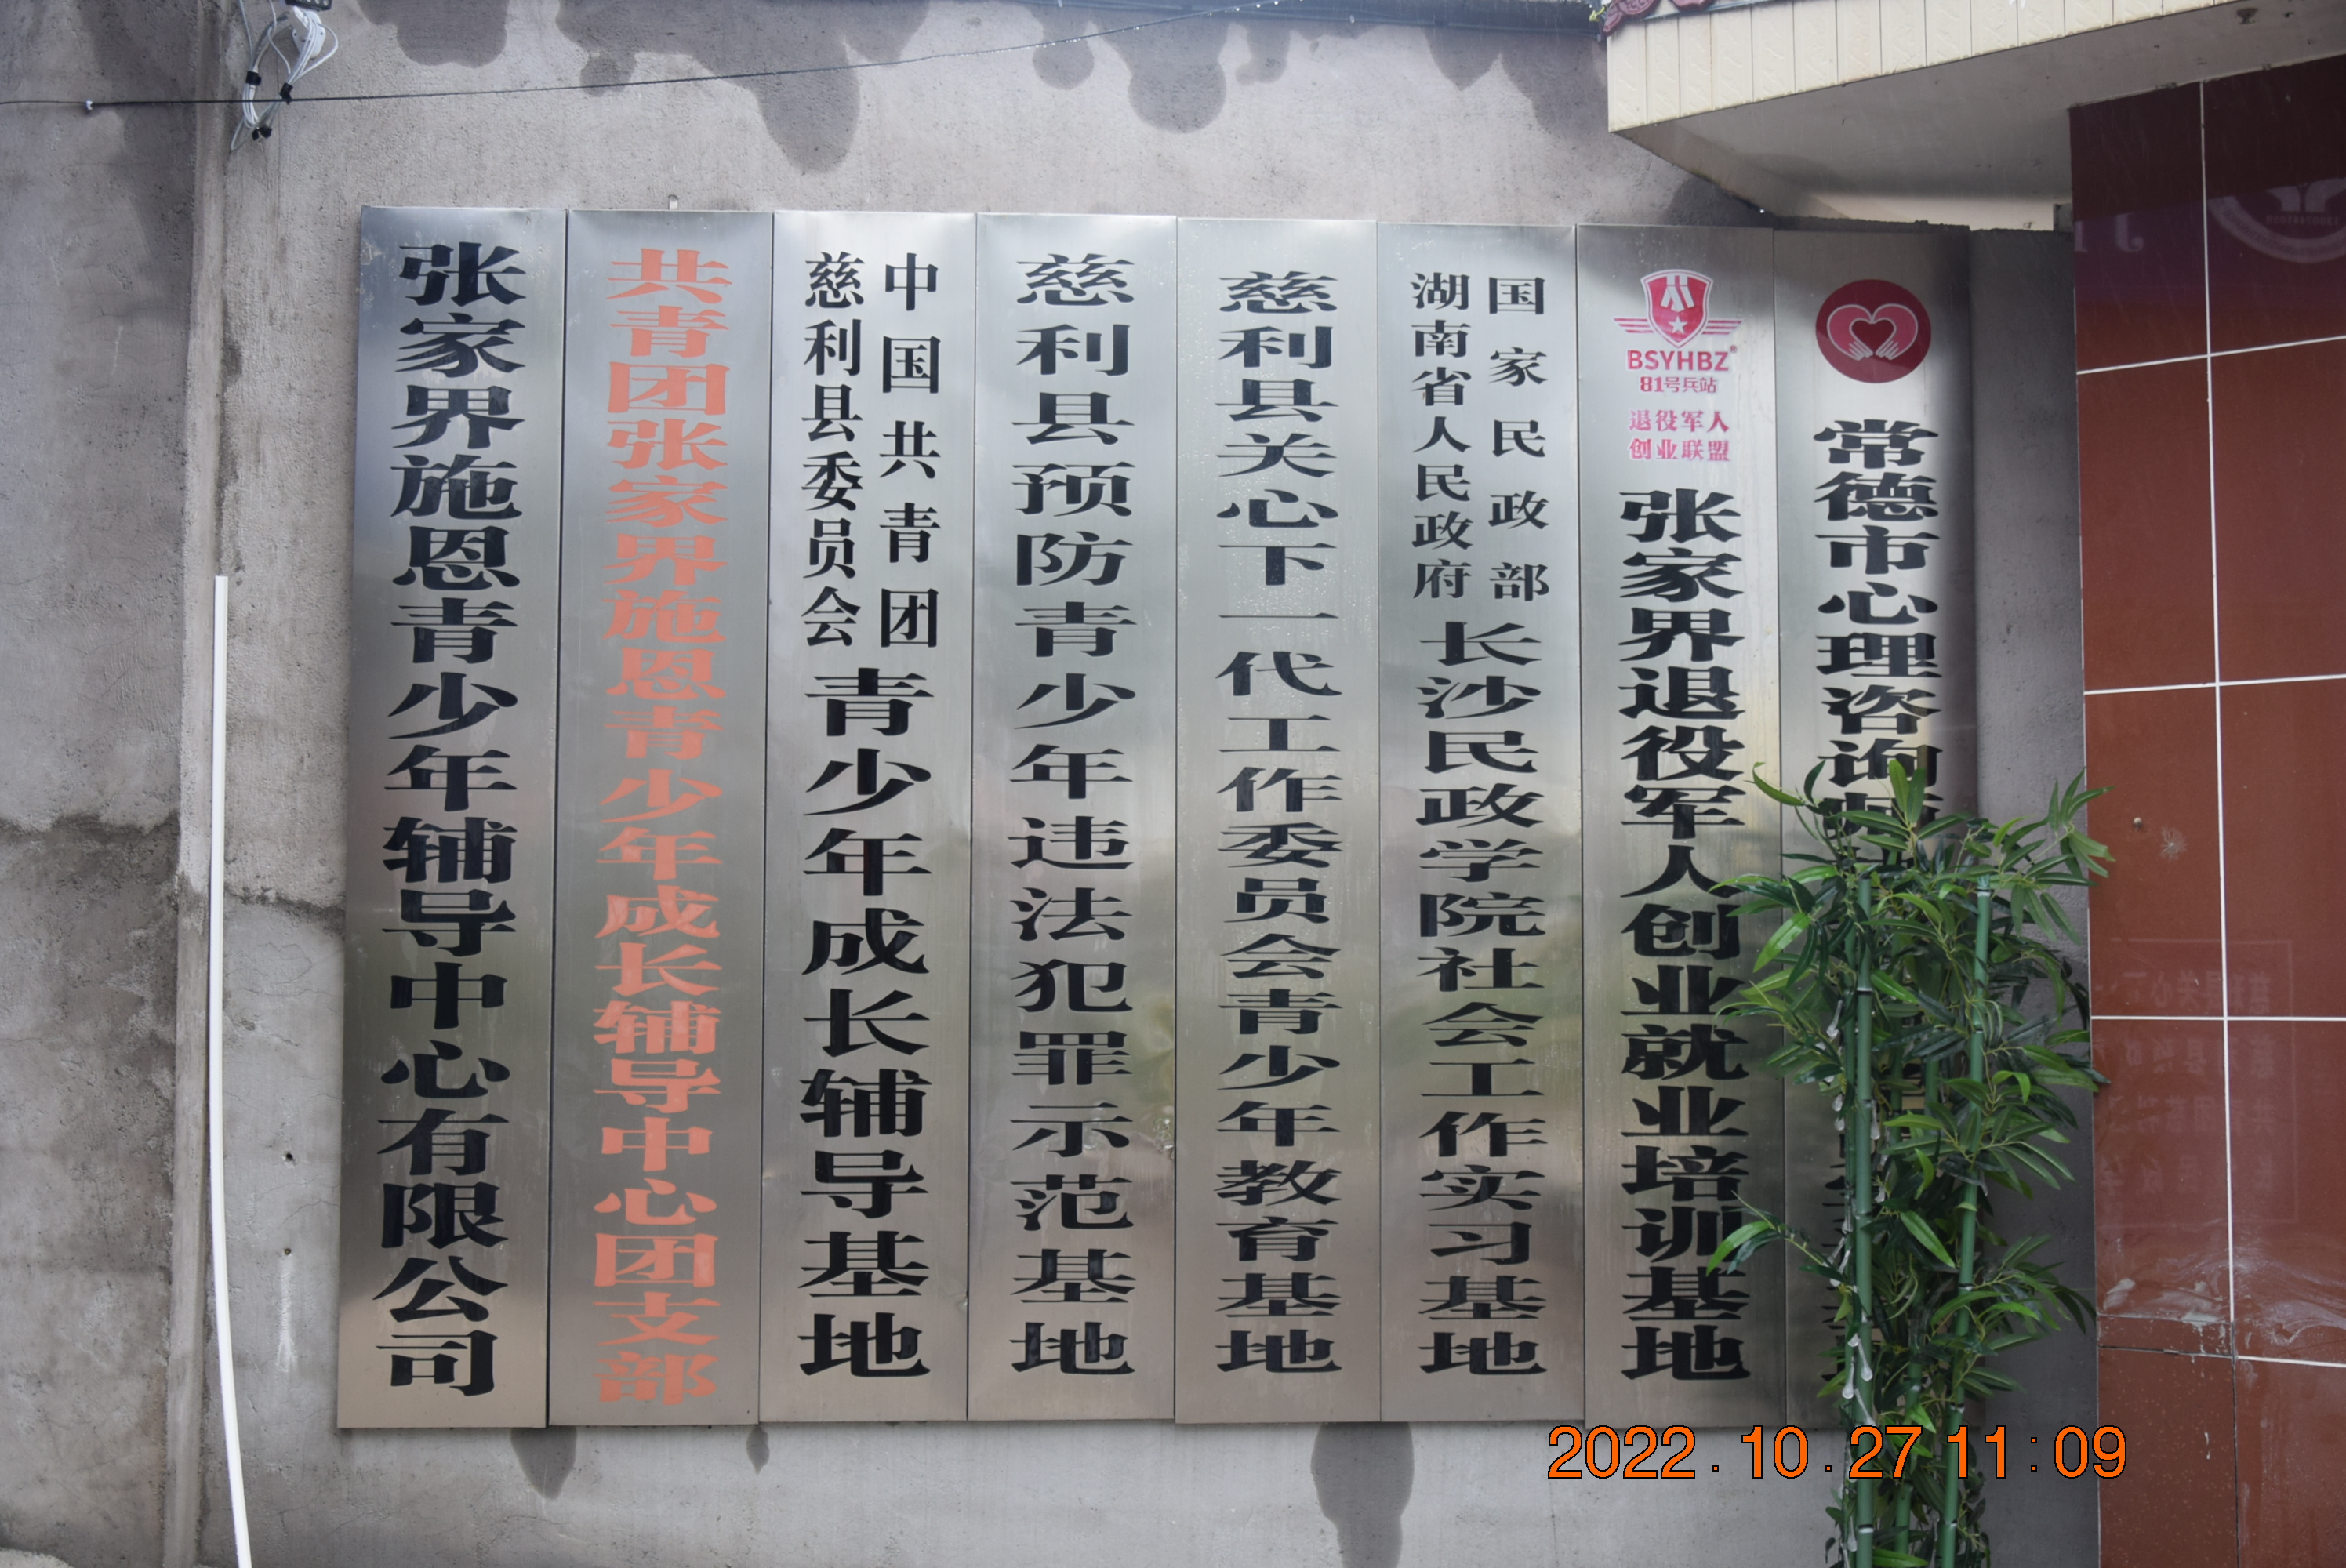 张家界施恩青少年辅导中心有限公司
共青团张家界施恩青少年成长辅导中心团支部
中国共青团
慈利县委员会
青少年成长辅导基地
慈利县预防青少年违法犯罪示范基地
慈利县关心下一代工作委员会青少年教育基地
国家民政部
湖南省人民政府
长沙民政学院社会工作实习基地
BSYHBZ®
81号兵站
退役军人
创业联盟
张家界退役军人创业就业培训基地
常德市心理咨询师
2022.10.27 11:09